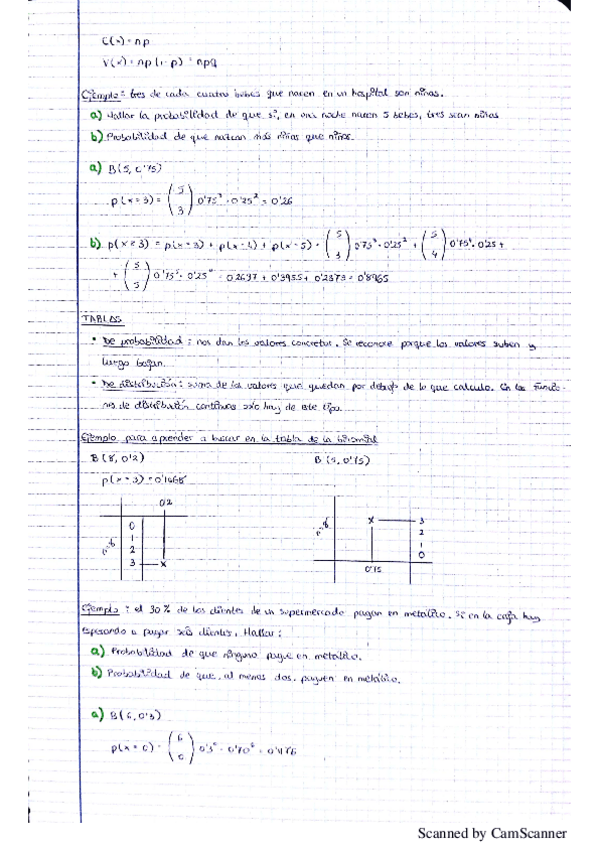 E(x) = np
V(x) = np(1-p) = npq
Ejemplo: tres de cada cuatro bebés que nacen en un hospital son niñas.
a) Hallar la probabilidad de que si, en una noche nacen 5 bebés, tres sean niñas
b) Probabilidad de que nazcan más niñas que niños.
a) B(5, 0'75)
p(x=3) = (5 3) 0'75³ · 0'25² = 0'26
b) p(x≥3) = p(x=3) + p(x=4) + p(x=5) = (5 3) 0'75³ · 0'25² + (5 4) 0'75⁴ · 0'25 +
+ (5 5) 0'75⁵ · 0'25⁰ = 0'2637 + 0'3955 + 0'2373 = 0'8965
TABLAS
• De probabilidad: nos dan los valores concretos. Se reconoce porque los valores suben y
luego bajan.
• De distribución: suma de los valores que quedan por debajo de lo que calculo. En las funcio-
nes de distribución continuas sólo hay de este tipo.
Ejemplo para aprender a buscar en la tabla de la binomial
B(8, 0'2)
B(5, 0'75)
p(x=3) = 0'1468
0'2
0
1
2
3 x
x 3
2
1
0
0'75
Ejemplo: el 30% de los clientes de un supermercado pagan en metálico. Si en la caja hay
esperando a pagar seis clientes. Hallar:
a) Probabilidad de que ninguno pague en metálico.
b) Probabilidad de que, al menos dos, paguen en metálico.
a) B(6, 0'3)
p(x=0) = (6 0) 0'3⁰ · 0'70⁶ =
Scanned by CamScanner